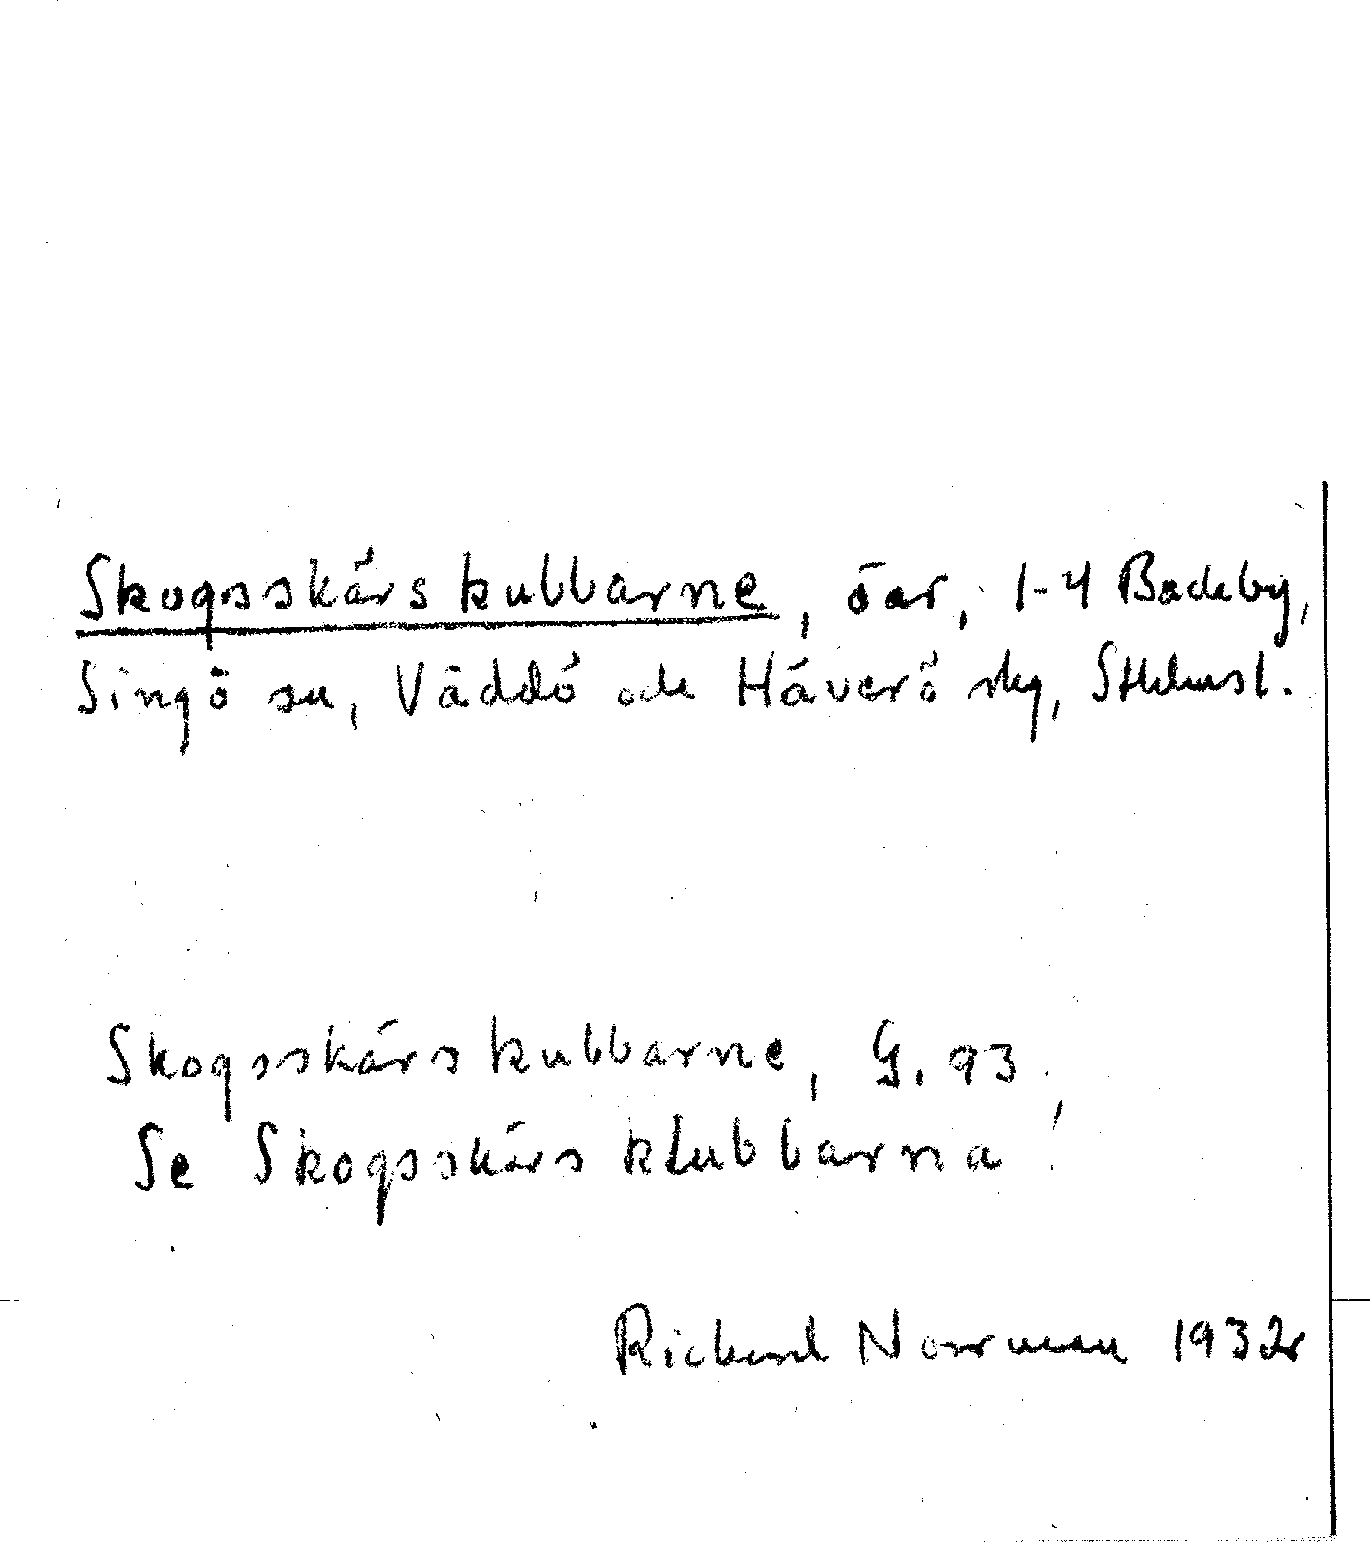 Skogsskärskubbarne, öar, 1-4 Backby,
Singö sn, Väddö och Häverö skg, Sthlmsl.
Skogsskärskubbarne, G. 93.
Se Skogsskärsklubbarna!
Rickard Norrman 1932